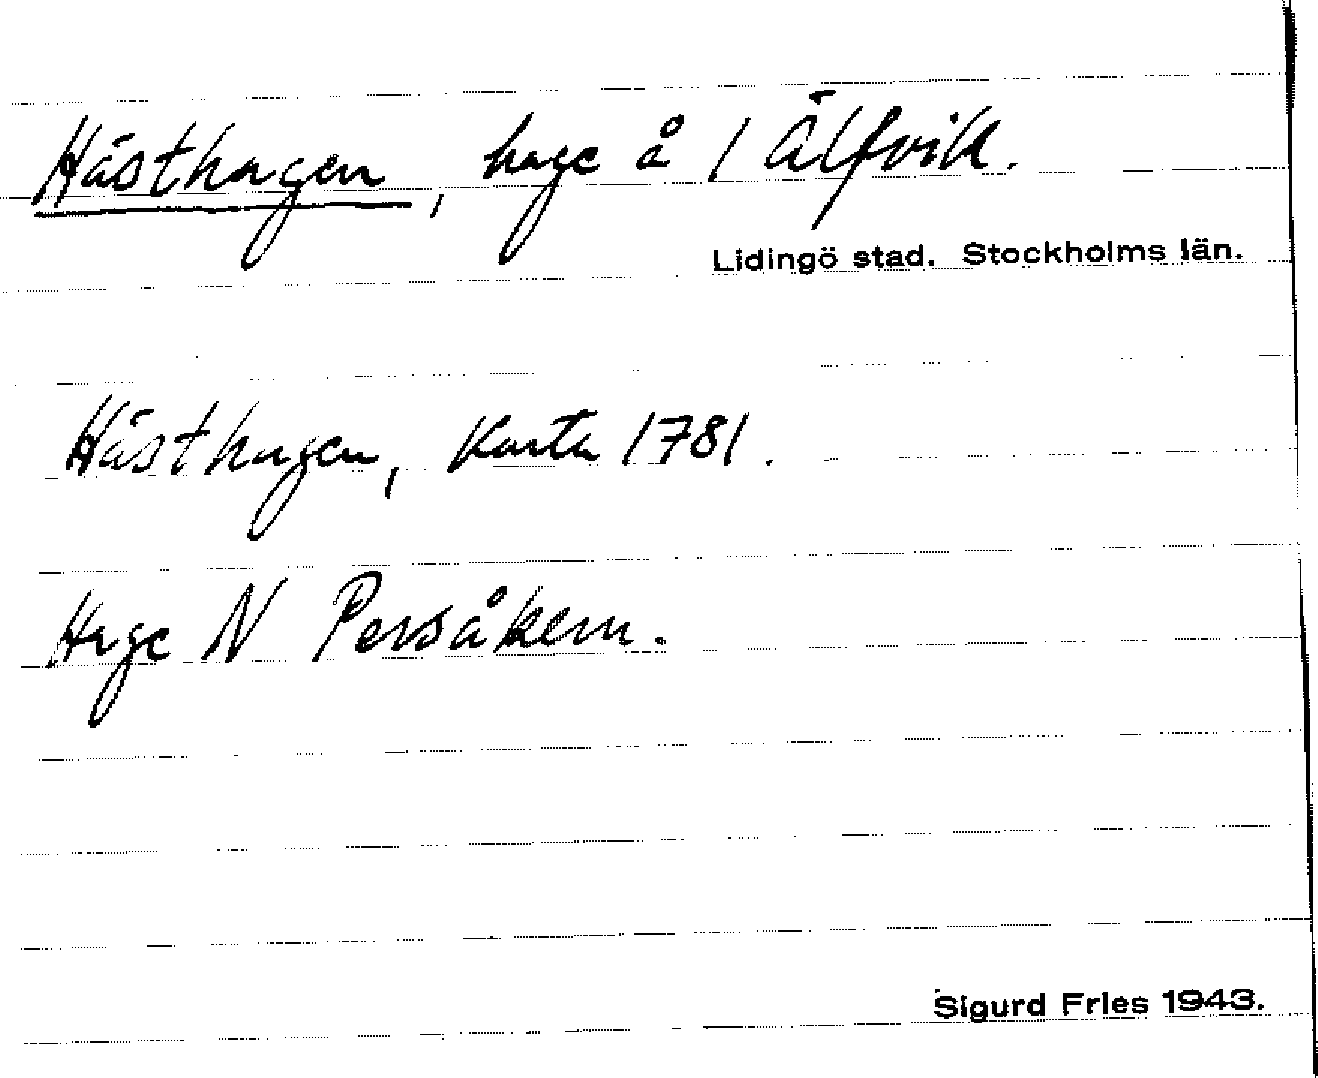 Hästhagen, hage å 1 Älfvik.
Lidingö stad. Stockholms län.
Hästhagen, Karta 1781.
Hage N Persåkern.
Sigurd Fries 1943.